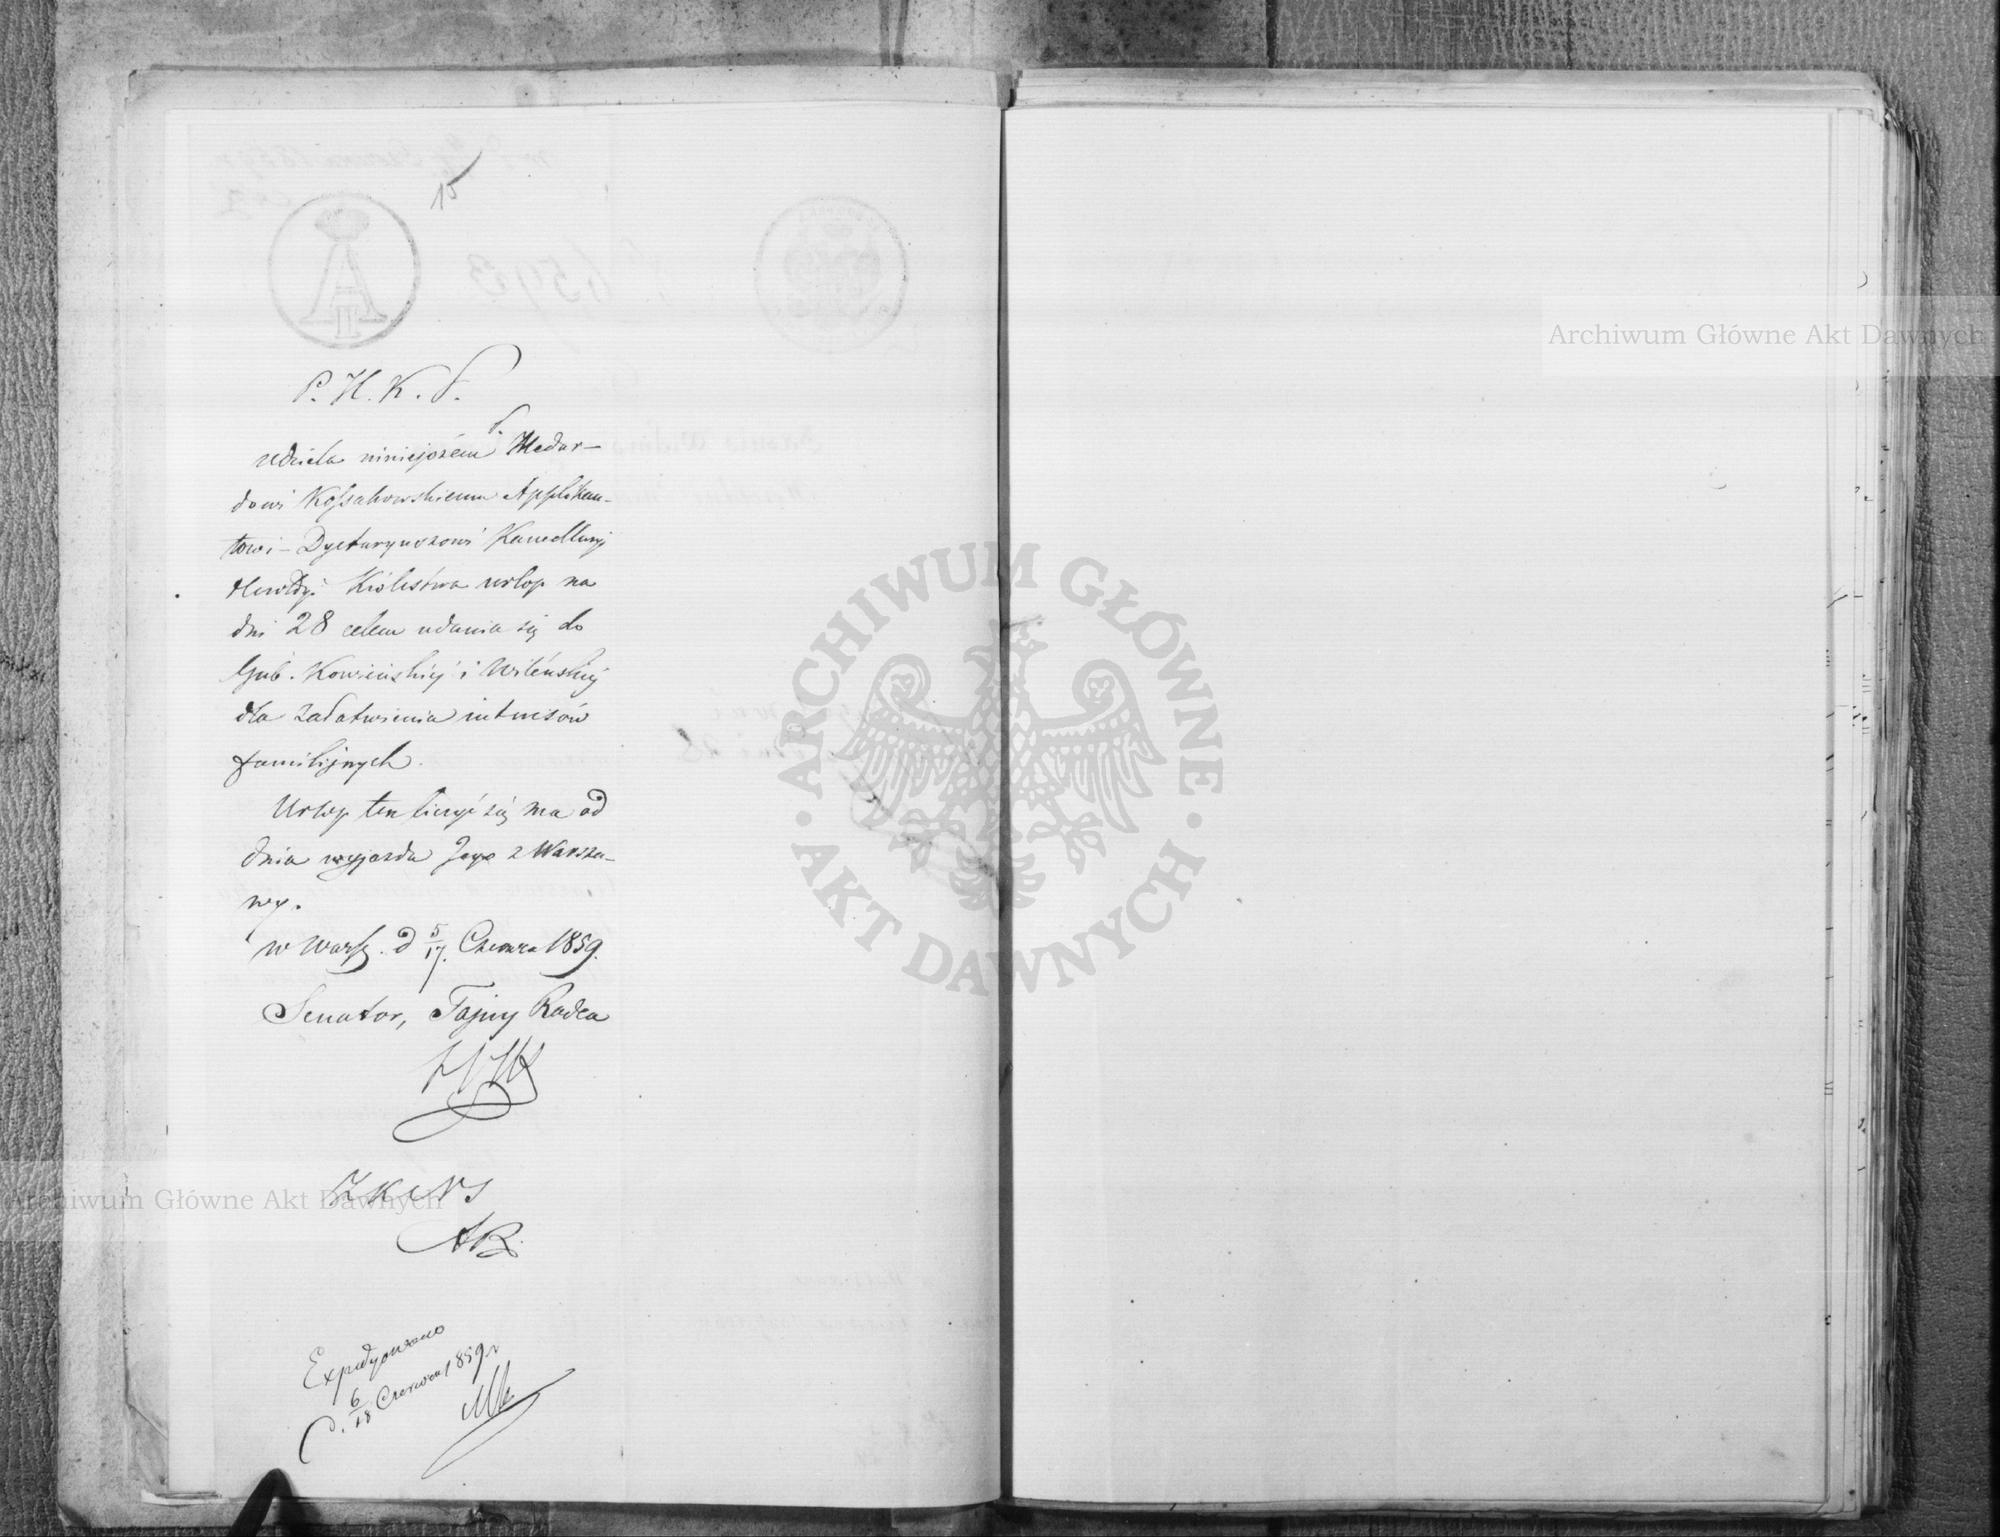 15
A
II
P. H. K. S.
udziela niniejszém P. Medar-
dowi Kossakowskiemu Applikan-
towi - Dyetaryuszowi Kancellaryi
Herold: Królestwa urlop na
dni 28 celem udania się do
Gub. Kowieńskiéj i Wileńskiéj
dla załatwienia interesów
familijnych.
Urlop ten liczyć się ma od
dnia wyjazdu Jego z Warsza-
wy.
w Warsz. d 5/17. Czerwca 1859.
Senator, Tajny Radca
Expedyowano
d. 6/18 Czerwca 1859 r
Archiwum Główne Akt Dawnych
ARCHIWUM GŁÓWNE AKT DAWNYCH
Archiwum Główne Akt Dawnych